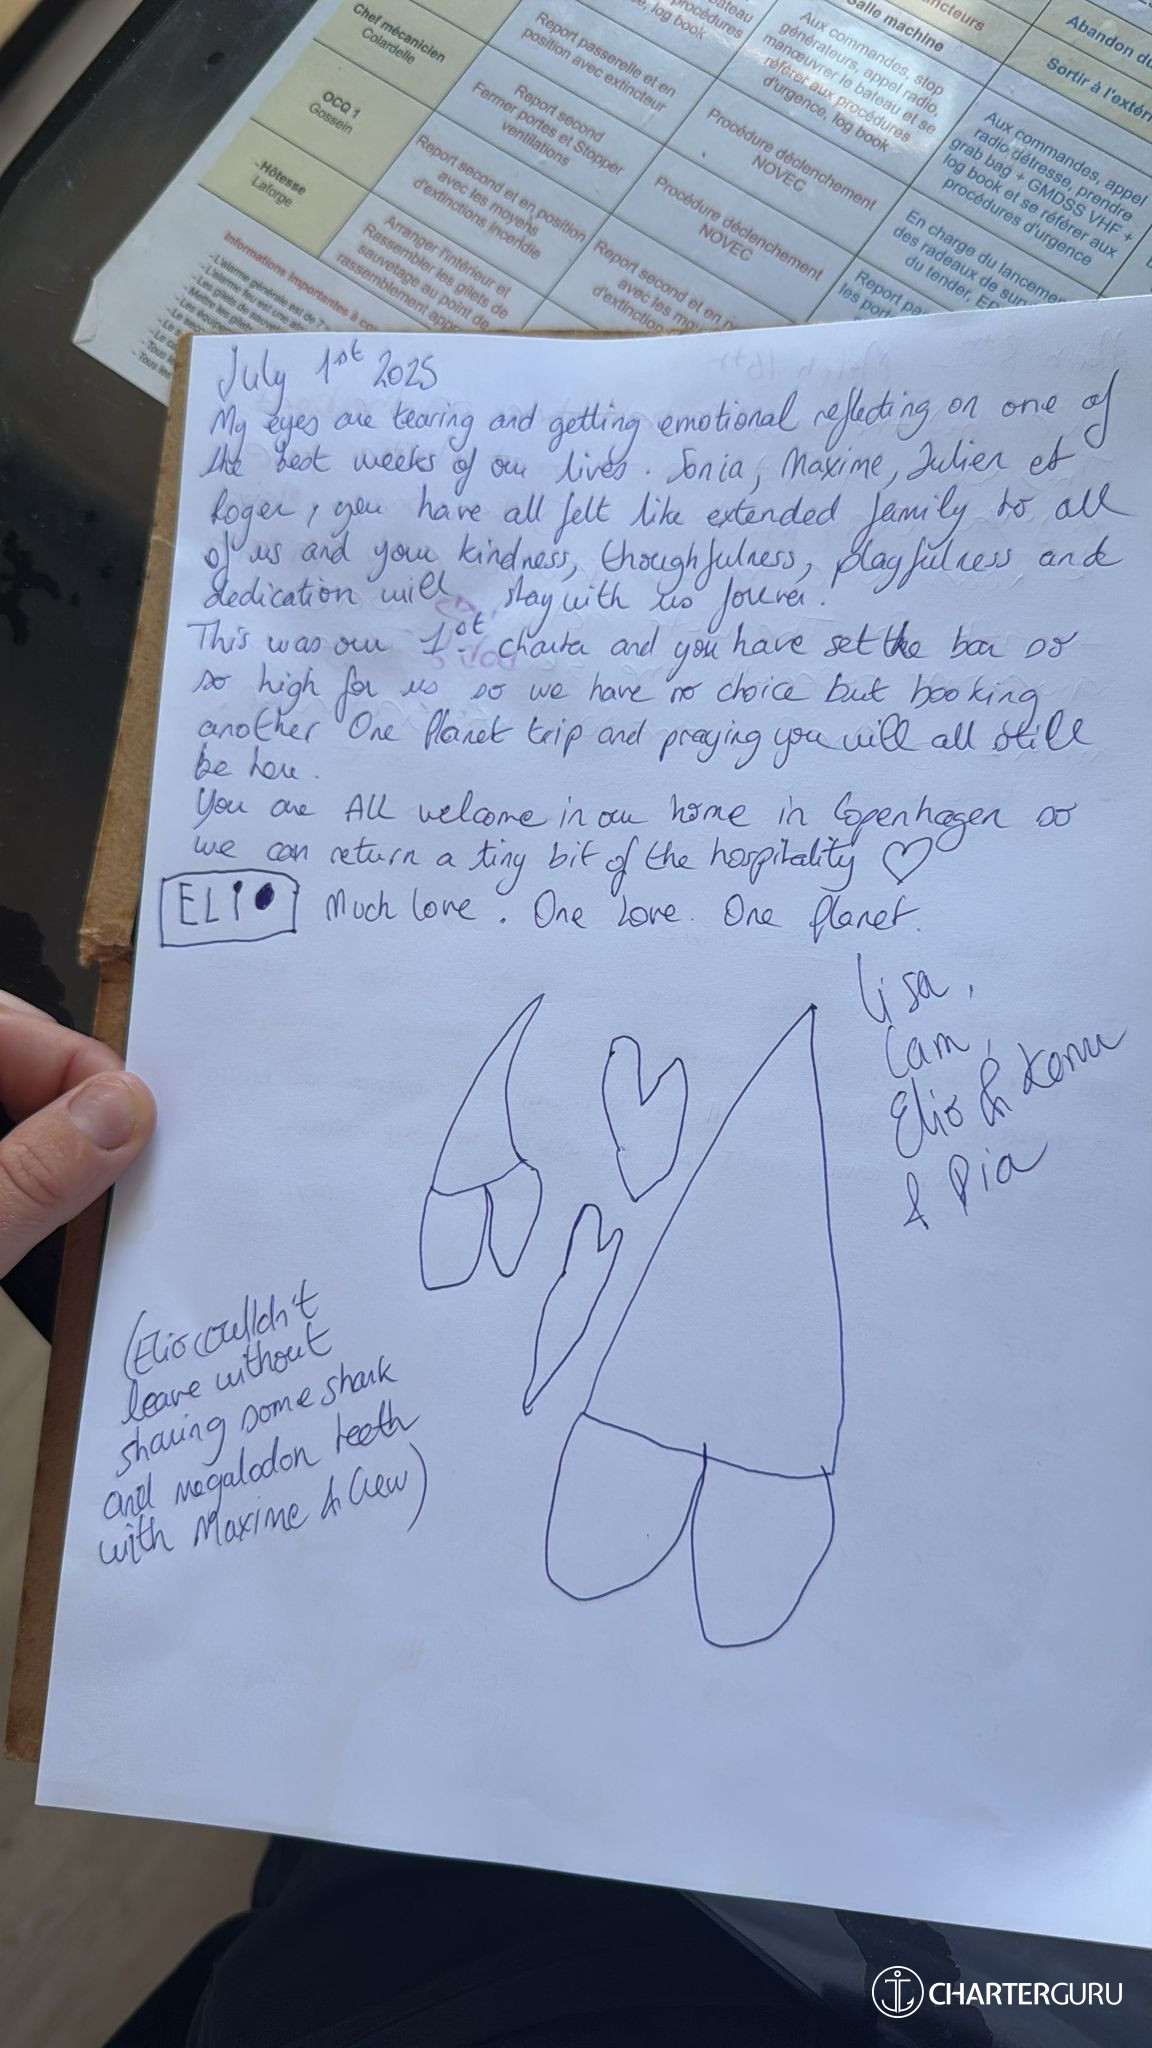 Chef mécanicien
Colardelle
Report passerelle et en
position avec extincteur
log book
Aux commandes, stop
générateurs, appel radio,
manœuvrer le bateau et se
référer aux procédures
d'urgence, log book
Salle machine
Abandon du
Sortir à l'extéri
OCQ 1
Gossein
Report second
Fermer portes et Stopper
ventilations
Procédure déclenchement
NOVEC
Aux commandes, appel
radio détresse, prendre
grab bag + GMDSS VHF +
log book et se référer aux
procédures d'urgence
Hôtesse
Laforge
Report second et en position
avec les moyens
d'extinctions incendie
Procédure déclenchement
NOVEC
En charge du lancemen
des radeaux de surv
du tender,
Arranger l'intérieur et
Rassembler les gilets de
sauvetage au point de
rassemblement
Report second et en
avec les
d'extinction
Report
les
Informations importantes à
July 1st 2025
My eyes are tearing and getting emotional reflecting on one of
the best weeks of our lives. Sonia, Maxime, Julien et
Roger, you have all felt like extended family to all
of us and your kindness, thoughfulness, playfulness and
dedication will stay with us forever.
This was our 1st charter and you have set the bar so
so high for us so we have no choice but booking
another One Planet trip and praying you will all still
be here.
You are ALL welcome in our home in Copenhagen so
we can return a tiny bit of the hospitality ♡
ELIO
Much love. One Love. One Planet.
Lisa,
Cam,
Elio &
& Pia
(Elio couldn't
leave without
sharing some shark
and megalodon teeth
with Maxime & Crew)
CHARTERGURU